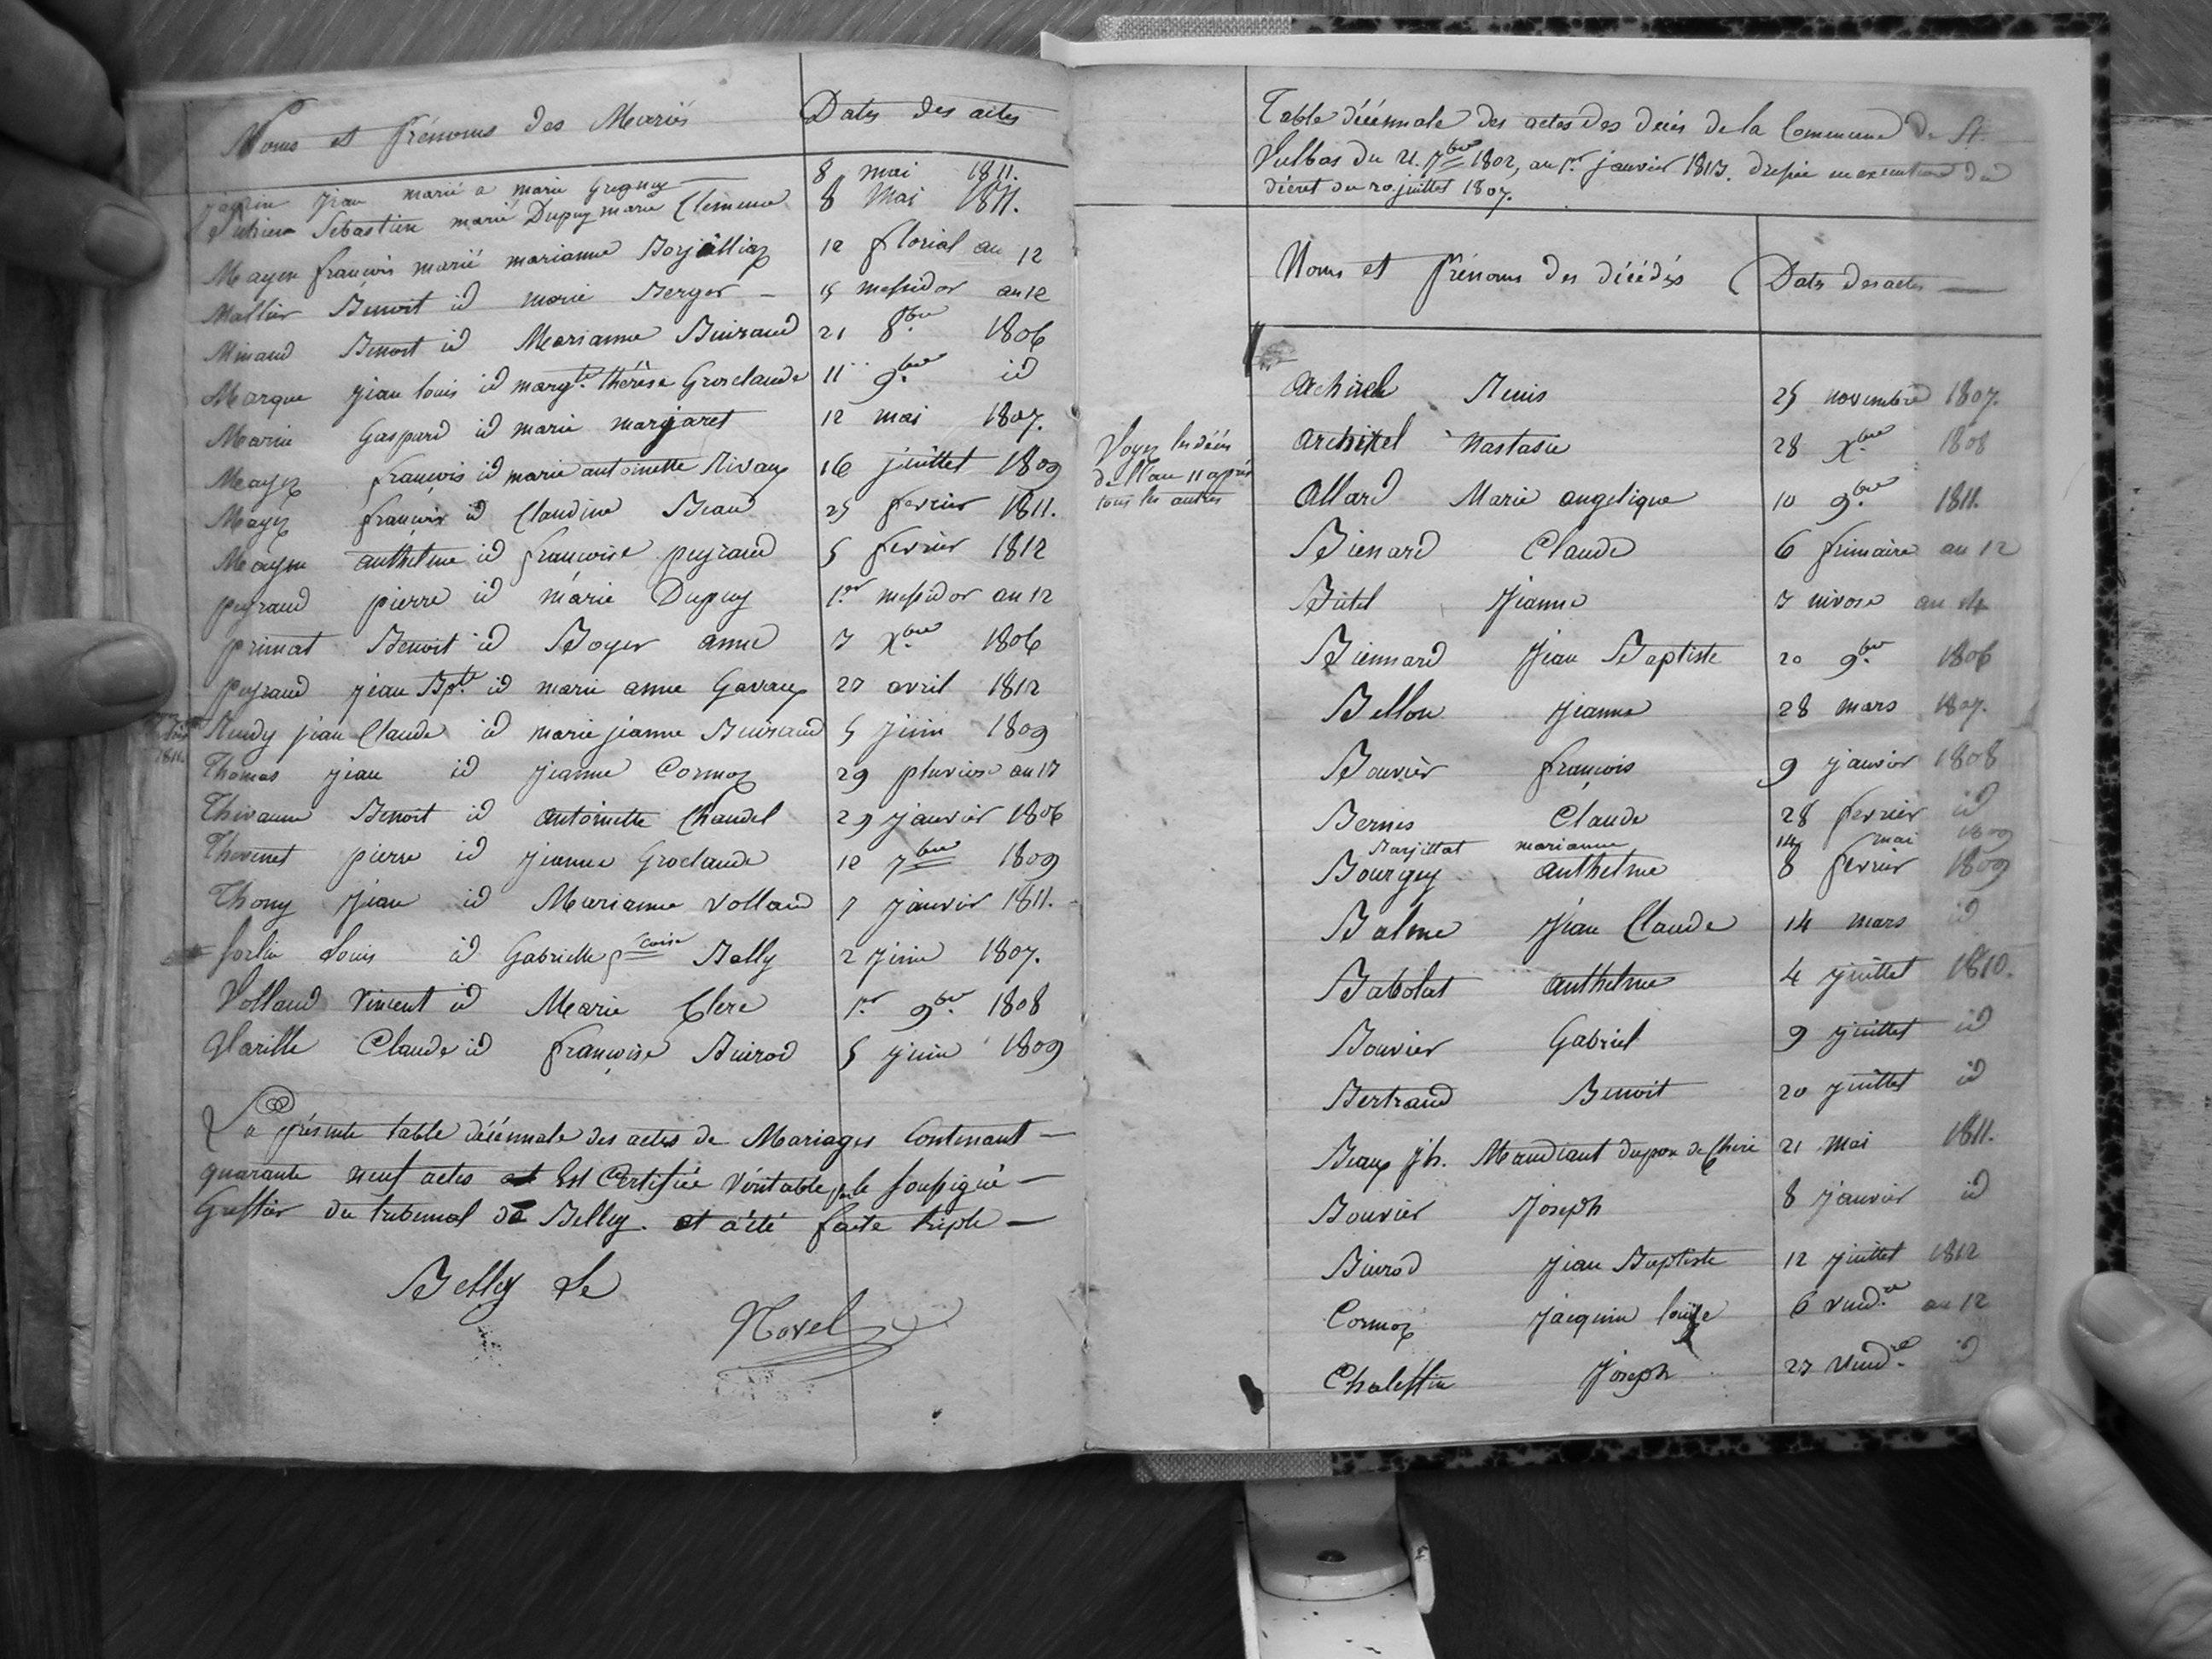 Noms et prénoms des Mariés Dates des actes
jean marié a marie 8 mai 1811.
Sebastien marié Dupuy marie Clemence 8 Mai 1811.
Mayen françois marié marianne 12 florial an 12
Mallier Benoit id marie Berger — 15 messidor an 12
Minaud Benoit id Marianne Buiraud 21 8.bre 1806
Marque jean louis id marg.te thérèse Grosclaude 11 9.bre id
Marin Gaspard id marie marjaret 12 mai 1807.
Mayez françois id marie antoinette Rivaux 16 juillet 1809
Mayez françois id Claudine Beaud 25 fevrier 1811.
Mayen anthelme id françoise peyraud 5 fevrier 1812
peyraud pierre id marie Dupuy 1.er messidor an 12
primat Benoit id Boyer anne 3 X.bre 1806
peyraud jean Bpt.te id marie anne Gavaux 27 avril 1812
jean Claude id marie jeanne Buiraud 5 juin 1809
1811.
Thomas jean id jeanne Cormoz 29 pluviose an 13
Thivanne Benoit id antoinette Chandel 29 janvier 1806
Thevenet pierre id jeanne Groclaude 12 7bre 1809
Thony jean id Marianne Volland 7 janvier 1811.
forlin Louis id Gabrielle fcoise Belly 2 juin 1807.
Volland Vincent id Marie Clerc 1.er 9.bre 1808
Varille Claude id françoise Buirod 5 juin 1809
La présente table décénnale des actes de Mariages Contenant —
quarante neuf actes Est Certifiée Véritable par le soussigné —
Greffier du tribunal de Belley. et a été faite triple —
Belley Le
Novel
Table décénnale des actes des décés de la Commune de St.
Vulbas du 21. 7bre 1802, au 1.er janvier 1813. dressée en execution du
décret du 20 juillet 1807.
Noms et prénoms des décédés Dates des actes —
Voyez les décés
de l'an 11 après
tous les autres
Denis 25 novembre 1807.
Nastasie 28 X.bre 1808
Allard Marie angelique 10 9.bre 1811.
Bienard Claude 6 frimaire an 12
Bútel Jeanne 3 nivose an 14
Biennard Jean Baptiste 20 9.bre 1806
Bellon jeanne 28 mars 1807.
Bouvier françois 9 janvier 1808
Bernis Claude 28 fevrier id
Borjillat marianne 14 mai 1809
Bourgey anthelme 8 fevrier 1809
Balme Jean Claude 14 mars id
Babolat anthelme 4 juillet 1810.
Bouvier Gabriel 9 juillet id
Bertrand Benoit 20 juillet id
Beaux jh. Mandiant 21 Mai 1811.
Bouvier Joseph 8 janvier id
Buirod jean Baptiste 12 juillet 1812
Cormoz jacquine louise 6 vend.re an 12
Joseph 27 vend.re id